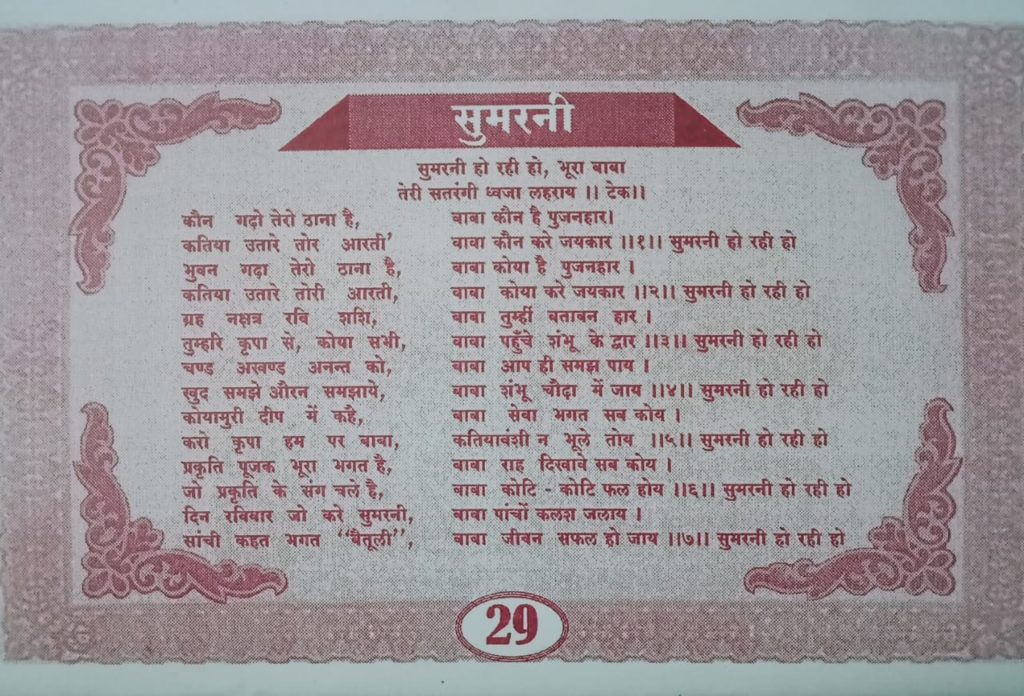 सुमरनी
सुमरनी हो रही हो, भूरा बाबा
तेरी सतरंगी ध्वजा लहराय ।। टेक।।
कौन गढ़ो तेरो ठाना है, बाबा कौन है पुजनहार।
कतिया उतारे तोर आरती' बाबा कौन करे जयकार ।।१।। सुमरनी हो रही हो
भुबन गढ़ा तेरो ठाना है, बाबा कोया है पुजनहार ।
कतिया उतारे तोरी आरती, बाबा कोया करे जयकार ।।२।। सुमरनी हो रही हो
ग्रह नक्षत्र रवि शशि, बाबा तुम्हीं बताबन हार ।
तुम्हरि कृपा से, कोया सभी, बाबा पहुँचे शंभू के द्वार ।।३।। सुमरनी हो रही हो
चण्ड अखण्ड अनन्त को, बाबा आप ही समझ पाय ।
खुद समझे औरन समझाये, बाबा शंभू चौढ़ा में जाय ।।४।। सुमरनी हो रही हो
कोयामुरी दीप में कहै, बाबा सेवा भगत सब कोय ।
करो कृपा हम पर बाबा, कतियाबंशी न भूले तोय ।।५।। सुमरनी हो रही हो
प्रकृति पूजक भूरा भगत है, बाबा राह दिखावे सब कोय ।
जो प्रकृति के संग चले है, बाबा कोटि - कोटि फल होय ।।६।। सुमरनी हो रही हो
दिन रविबार जो करे सुमरनी, बाबा पांचों कलश जलाय ।
सांची कहत भगत ‘‘बैतूली’’, बाबा जीवन सफल हो जाय ।।७।। सुमरनी हो रही हो
29